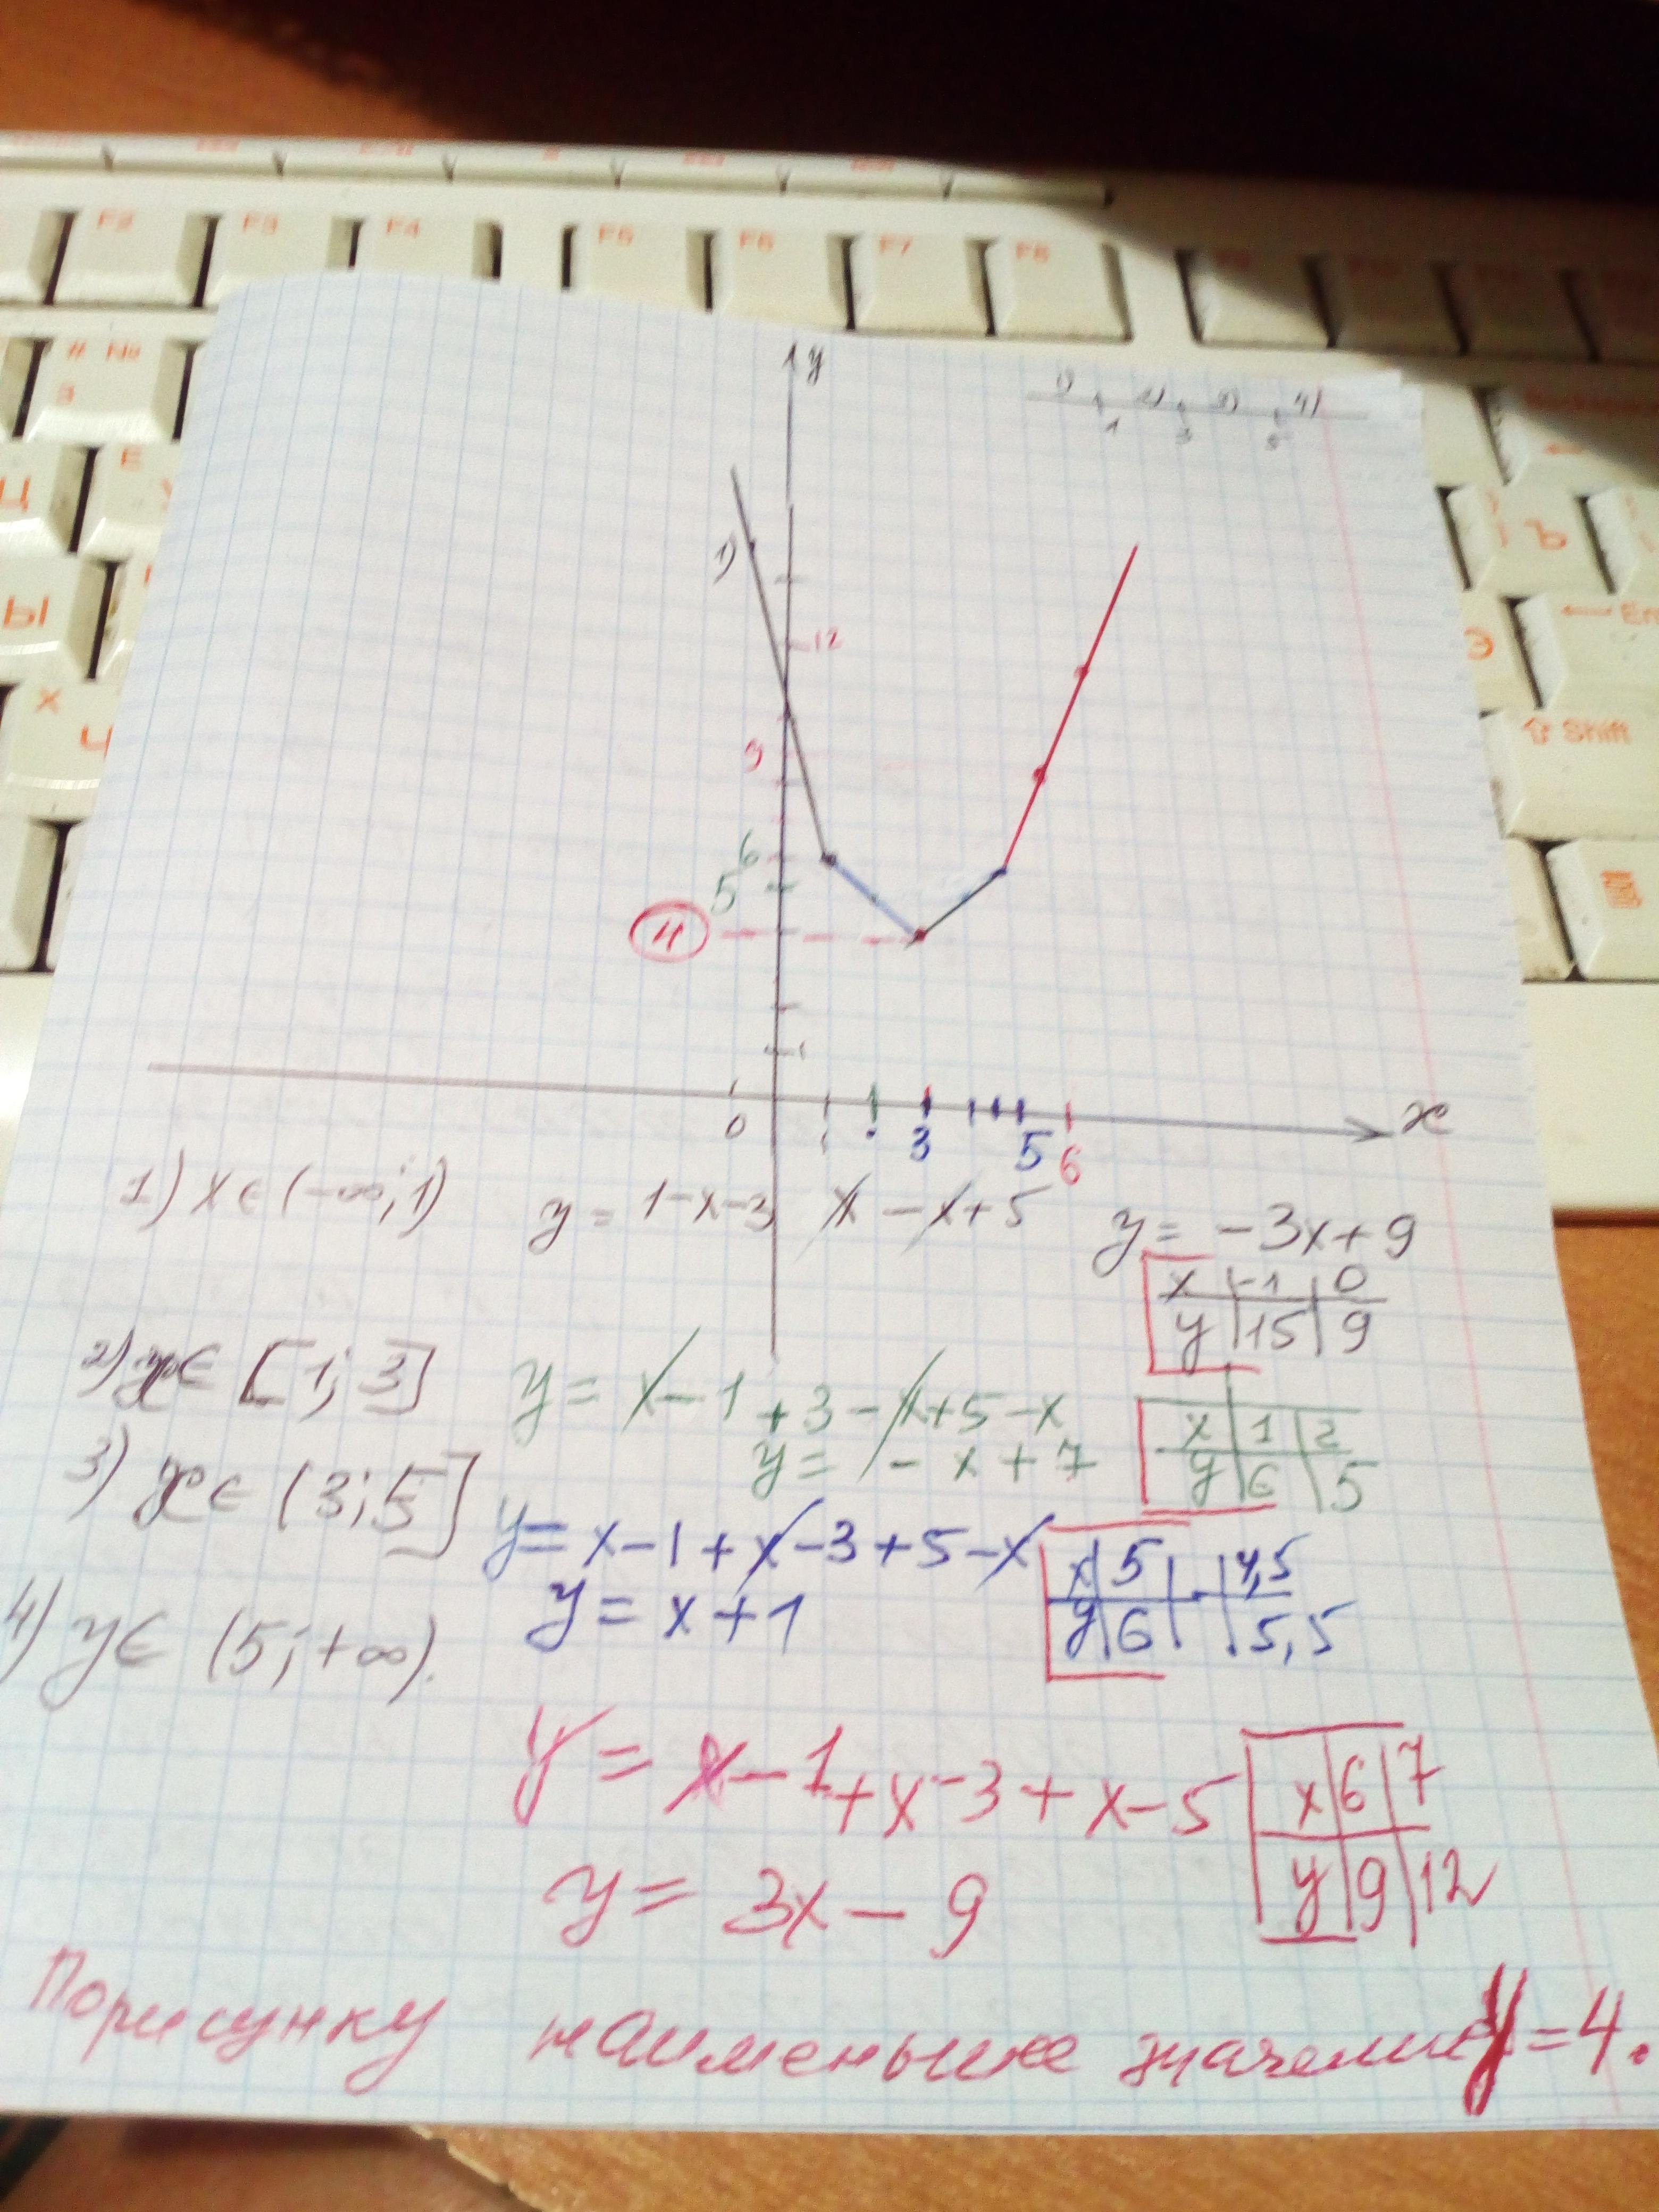 F2 F3 F4 F5 F6 F7 F8
# №
3
Ц
Е
Ы
Х
Ч
Ъ
Э
Shift
y
1) 2) 3) 4)
1 3 5
1)
12
9
6
5
4
1
0 3 5 6
x
1) x∈(-∞;1) y = 1-x-3 x - x+5 y = -3x+9
x -1 0
y 15 9
2) x∈ [1; 3] y = x-1+3-x+5-x
y = -x+7
x 1 2
y 6 5
3) x∈ (3;5] y= x-1+x-3+5-x
y = x+1
x 5 4,5
y 6 5,5
4) y∈ (5;+∞).
y = x-1+x-3+x-5
y = 3x-9
x 6 7
y 9 12
По рисунку наименьшее значение y=4.